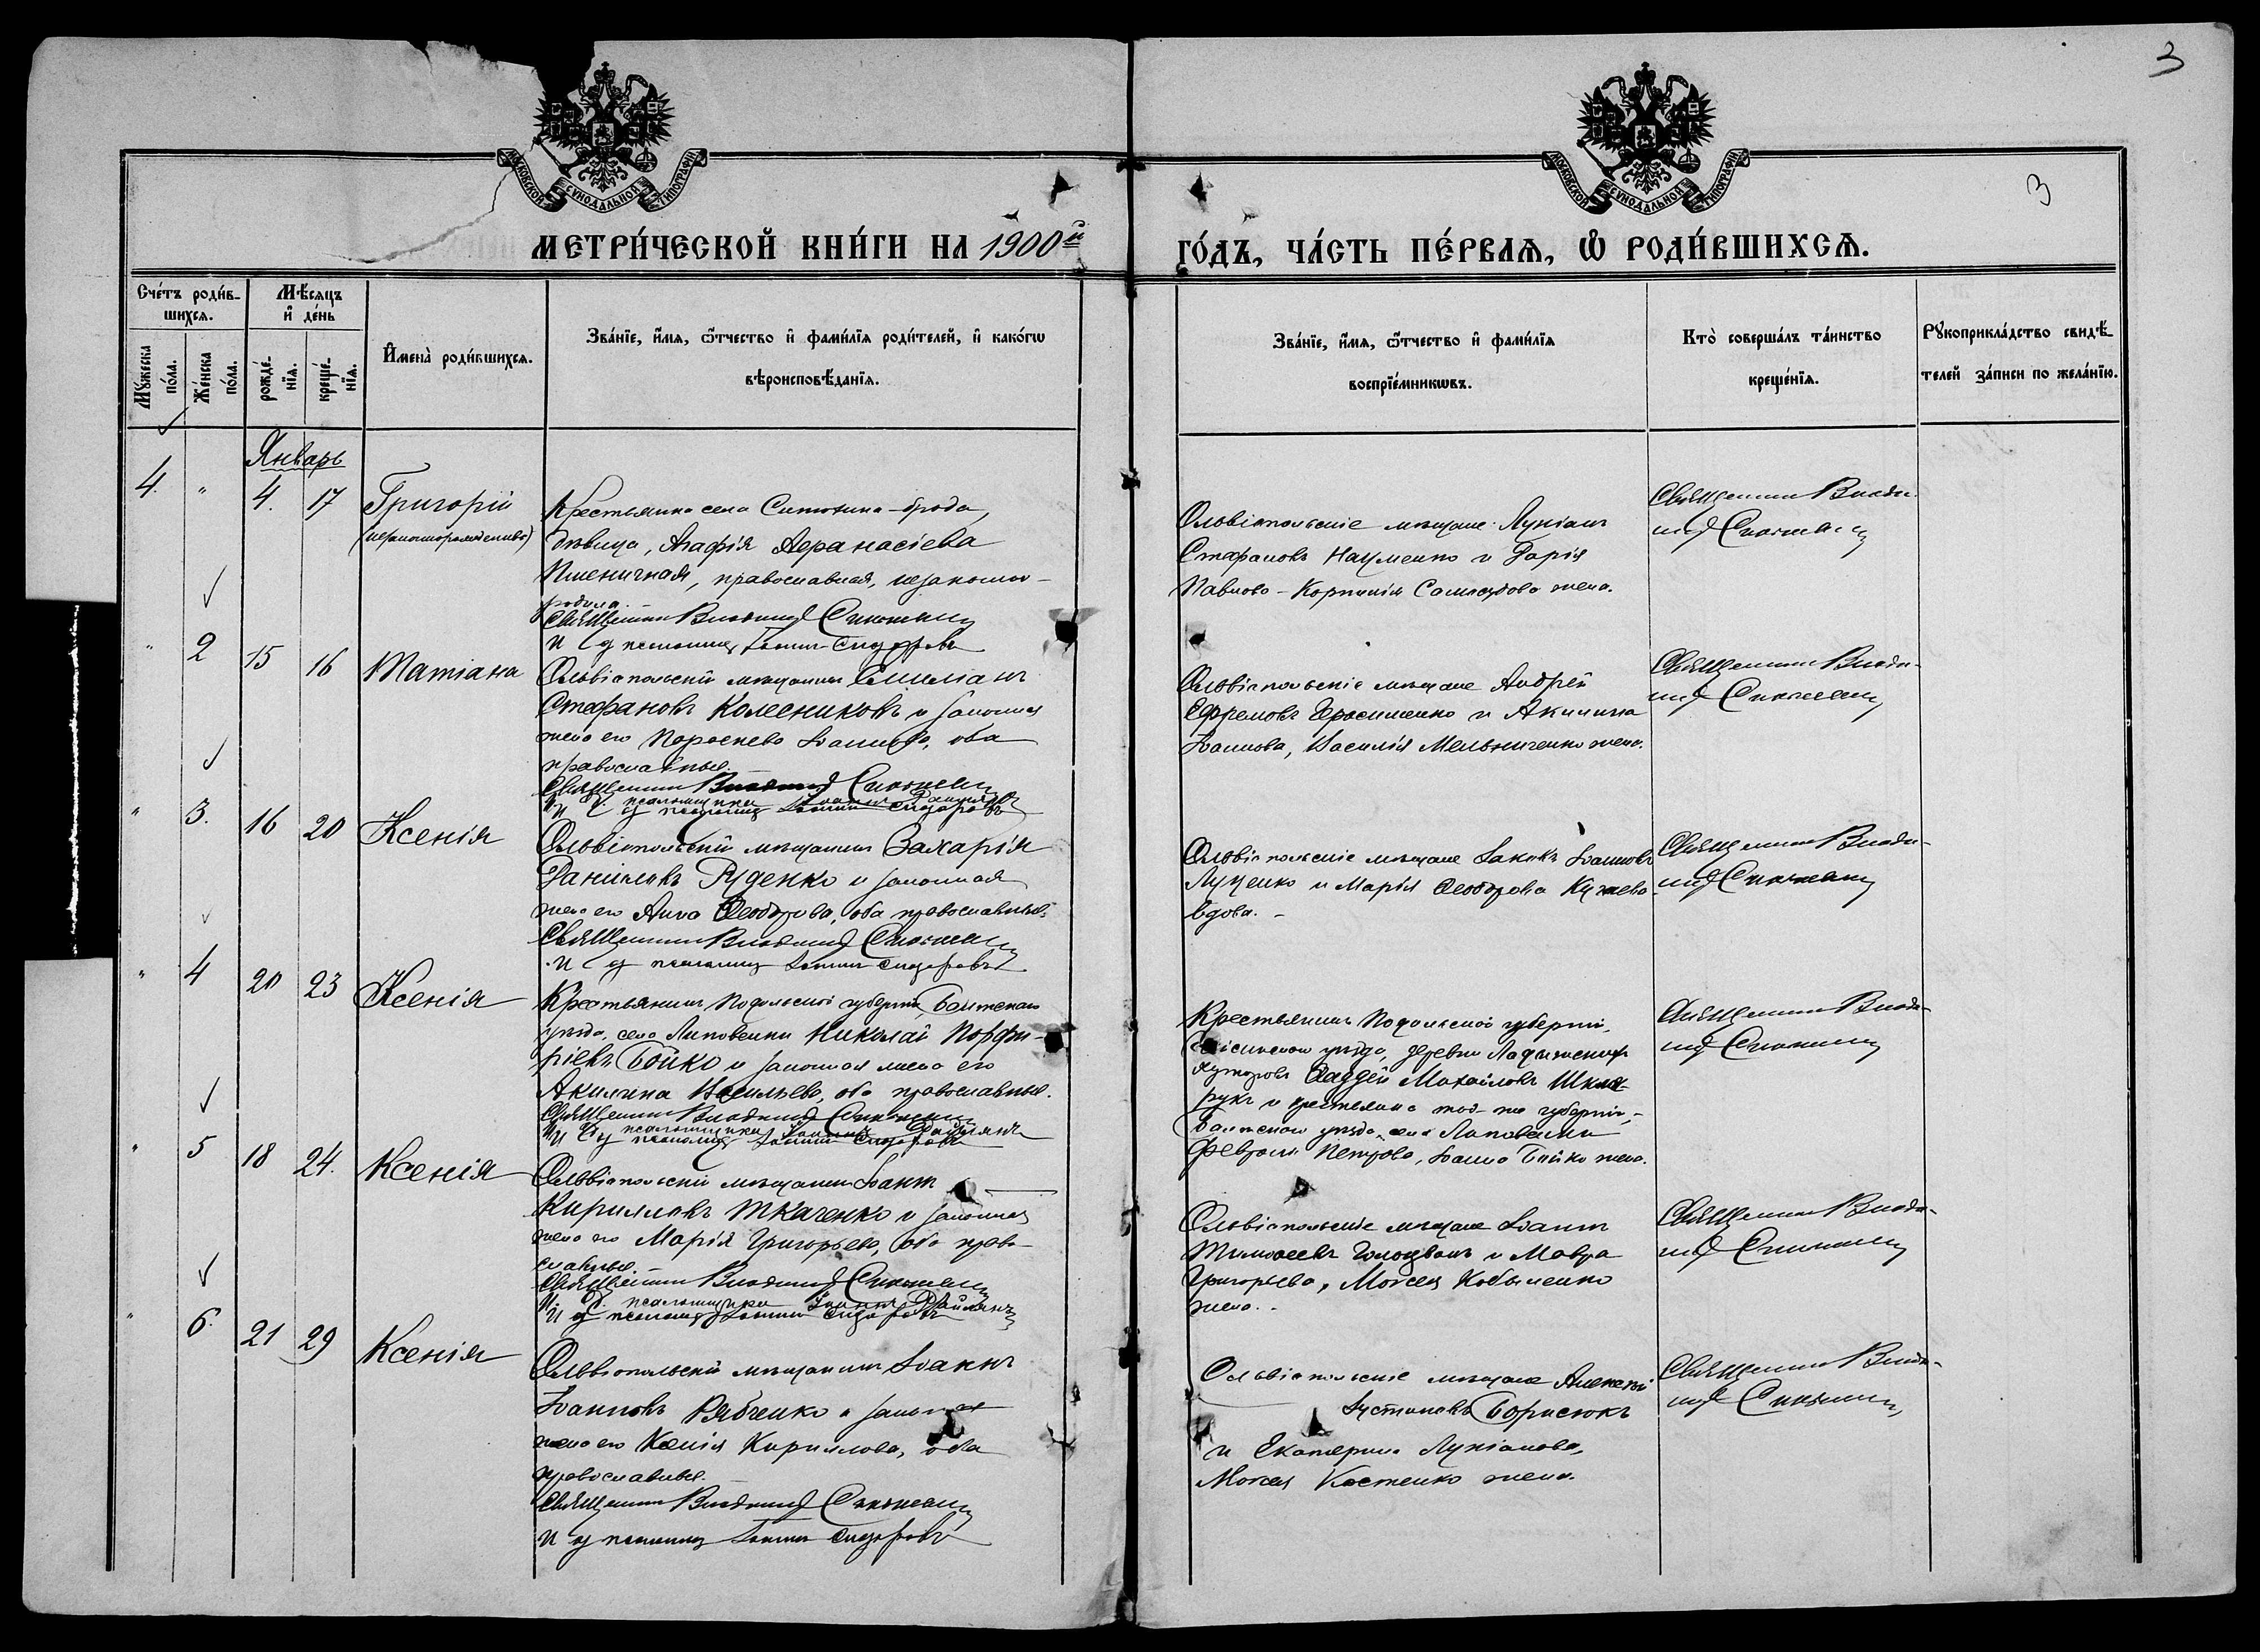 3
3
МОСКОВСКОЙ СУНОДАЛЬНОЙ ТИПОГРАФІИ
МОСКОВСКОЙ СУНОДАЛЬНОЙ ТИПОГРАФІИ
МЕТРИ́ЧЕСКОЙ КНИ́ГИ НА 1900й ГО́ДЪ, ЧА́СТЬ ПЕ́РВАѦ, Ѡ РОДИ́ВШИХСѦ.
Сче́тъ роди́в-
шихсѧ.
Мꙋ́жеска
по́ла.
Же́нска
по́ла.
Мѣ́сяцъ
и҆ де́нь
рожде́-
нїѧ.
креще́-
нїѧ.
И҆мена̀ роди́вшихсѧ.
Зва́нїе, и҆́мѧ, ѻ҆́тчество и҆ фами́лїѧ роди́телей, и҆ како́гѡ
вѣроисповѣ́данїѧ.
Зва́нїе, и҆́мѧ, ѻ҆́тчество и҆ фами́лїѧ
воспрїе́мникѡвъ.
Кто̀ соверша́лъ та́инство
креще́нїѧ.
Рꙋкоприкла́дство свидѣ́-
телей за́писи по жела́нїю.
Январь
4. " 4. 17 Григорій
(незаконнорожденный)
Крестьянка села Синюхина-брода,
девица, Агафія Аѳанасіева
Пшеничная, православная, незаконно-
родила.
Священникъ Владимір
и псаломщ Іоаннъ Сидоровъ
Ольвіопольскіе мѣщане Лукіанъ
Стефановъ Науменко и Дарія
Павлова - Корнилія жена.
Священникъ Влади-
мір
" 2 15 16 Татіана
Ольвіопольскій мѣщанинъ Емиліанъ
Стефановъ Колесниковъ и законная
жена его Параскева Іоаннова, оба
православные.
Священникъ Владимір
псаломщика Іоаннъ
и псаломщ Іоаннъ Сидоровъ
Ольвіопольскіе мѣщане Андрей
Ефремовъ Герасименко и Акилина
Іоаннова, Василія Мельниченко жена.
Священникъ Влади-
мір
" 3. 16 20 Ксенія
Ольвіопольскій мѣщанинъ Захарія
Даниловъ Руденко и законная
жена его Анна Ѳеодорова, оба православные.
Священникъ Владимір
и псаломщ Іоаннъ Сидоровъ
Ольвіопольскіе мѣщане Іаковъ Іоанновъ
Луценко и Марія Ѳеодорова
вдова.-
Священникъ Влади-
мір
" 4 20 23 Ксенія
Крестьянинъ Подольской губерніи, Балтскаго
уѣзда, села Липовеньки Николай Порфи-
ріевъ Бойко и законная жена его
Акилина Васильева, оба православные.
Священникъ Владимір
псаломщика Іоаннъ
и псаломщ Іоаннъ Сидоровъ
Крестьянинъ Подольской губерніи,
уѣзда, деревни Ладыженскихъ
хуторовъ Ѳаддей Михайловъ Шкля-
рукъ и крестьянка той-же губерніи,
Балтскаго уѣзда, села Липовеньки
Феврона Петрова, Іоанна Бойко жена.
Священникъ Влади-
мір
" 5 18 24. Ксенія
Ольвіопольскій мѣщанинъ Іоаннъ
Кирилловъ Ткаченко и законная
жена его Марія Григорьева, оба право-
славные.
Священникъ Владимір
псаломщика Іоаннъ
и псаломщ Іоаннъ Сидоровъ
Ольвіопольскіе мѣщане Іоаннъ
Тимоѳеевъ Голованъ и Мавра
Григорьева, Моисея Кобыленко
жена.-
Священникъ Влади-
мір
" 6. 21 29 Ксенія
Ольвіопольскій мѣщанинъ Іоаннъ
Іоанновъ Рябченко и законная
жена его Ксенія Кириллова, оба
православные.
Священникъ Владимір
и псаломщ Іоаннъ Сидоровъ
Ольвіопольскіе мѣщане Алексѣй
Іустиновъ Борисюкъ
и Екатерина Лукіанова,
Моисея Костенко жена.
Священникъ Влади-
мір